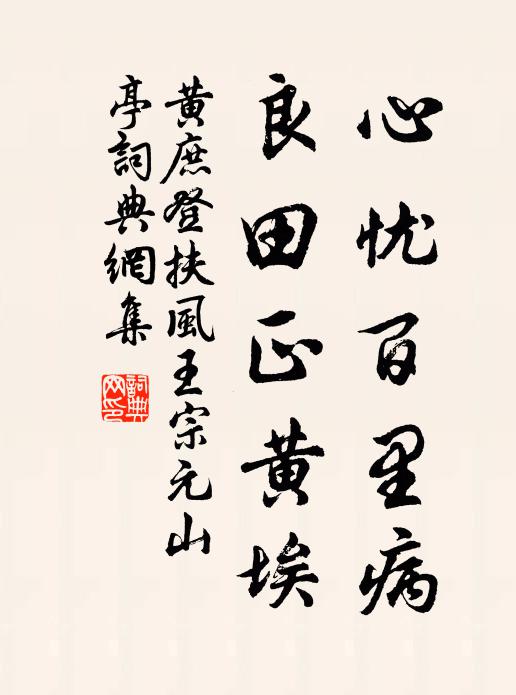 心忧百里病
良田正黄埃
黄庶登扶風王宗元山
亭詞典網集
詞典网印